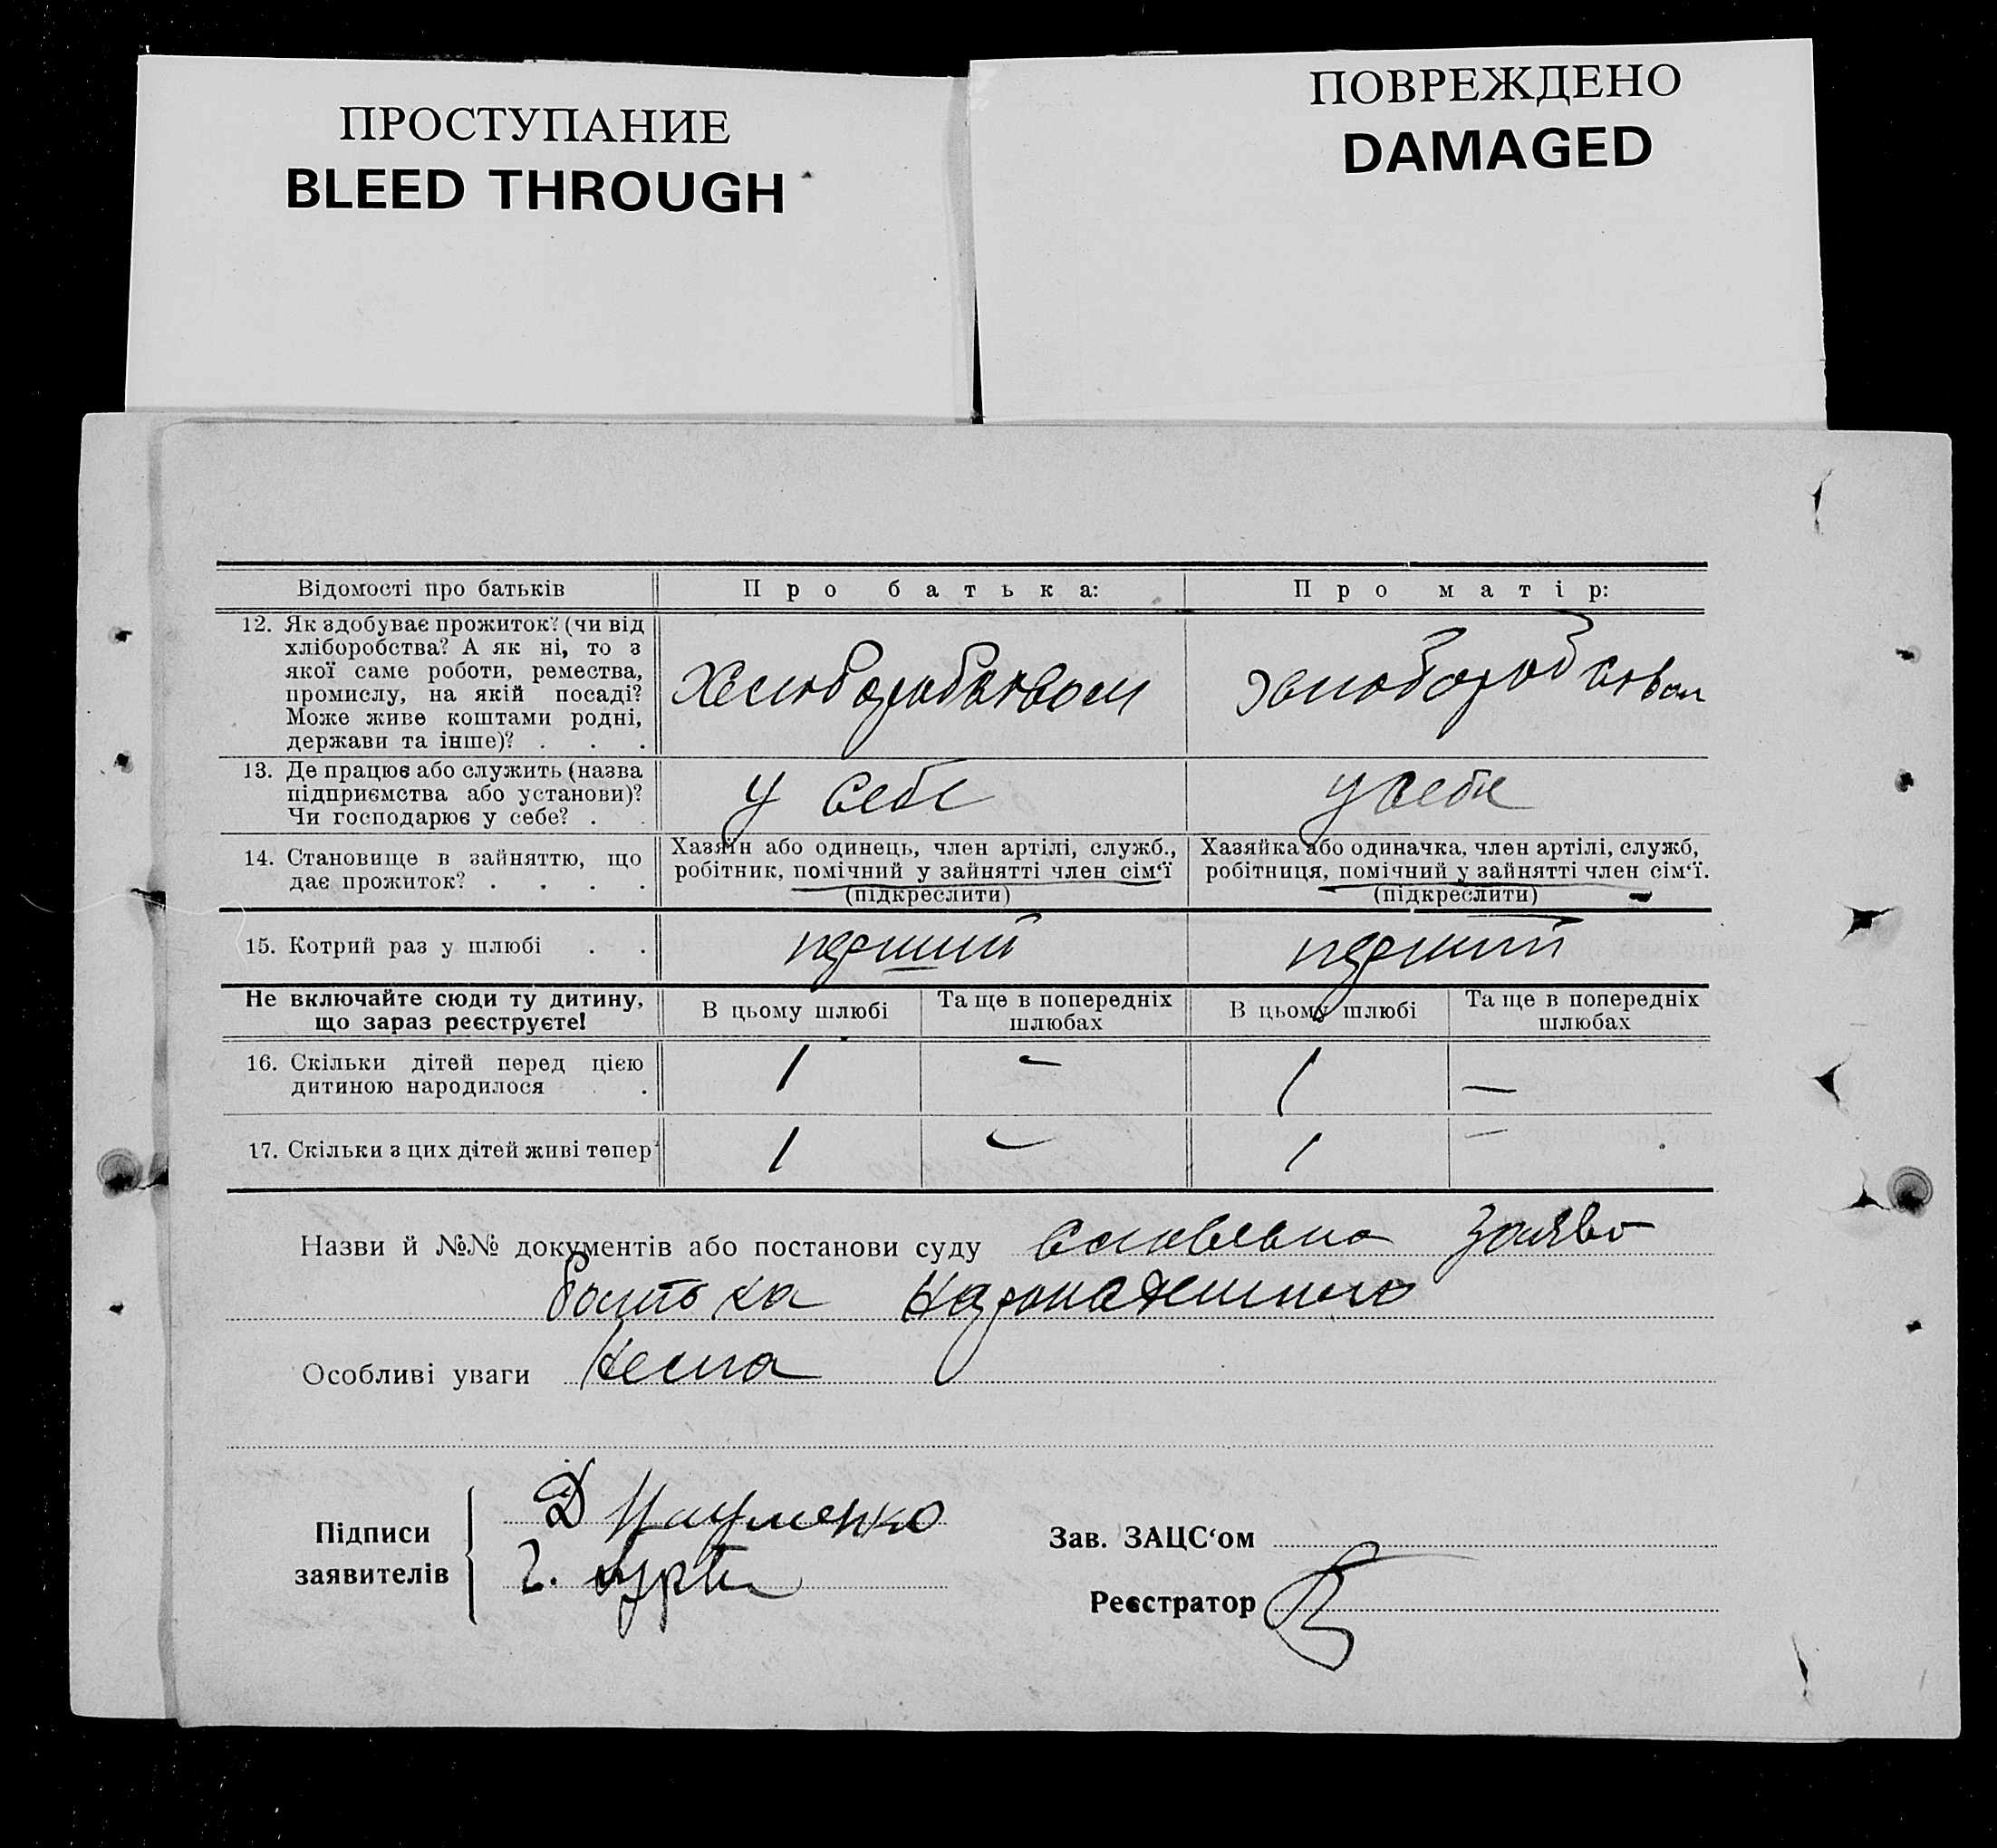 ПРОСТУПАНИЕ
BLEED THROUGH
ПОВРЕЖДЕНО
DAMAGED
Відомості про батьків
Про батька:
Про матір:
12. Як здобуває прожиток? (чи від
хліборобства? А як ні, то з
якої саме роботи, ремества,
промислу, на якій посаді?
Може живе коштами родні,
держави та інше)? . . .
13. Де працює або служить (назва
підприємства або установи)?
Чи господарює у себе? . .
у себе
у себе
14. Становище в зайняттю, що
дає прожиток? . . . .
Хазяїн або одинець, член артілі, служб.,
робітник, помічний у зайнятті член сім‘ї
(підкреслити)
Хазяйка або одиначка, член артілі, служб,
робітниця, помічний у зайнятті член сім‘ї.
(підкреслити)
15. Котрий раз у шлюбі . .
перший
перший
Не включайте сюди ту дитину,
що зараз реєструєте!
В цьому шлюбі
Та ще в попередніх
шлюбах
В цьому шлюбі
Та ще в попередніх
шлюбах
16. Скільки дітей перед цією
дитиною народилося .
1 — 1 —
17. Скільки з цих дітей живі тепер
1 — 1 —
Назви й №№ документів або постанови суду
батька
Особливі уваги Нема
Підписи
заявителів
Д Науменко
Зав. ЗАЦС‘ом
Реєстратор